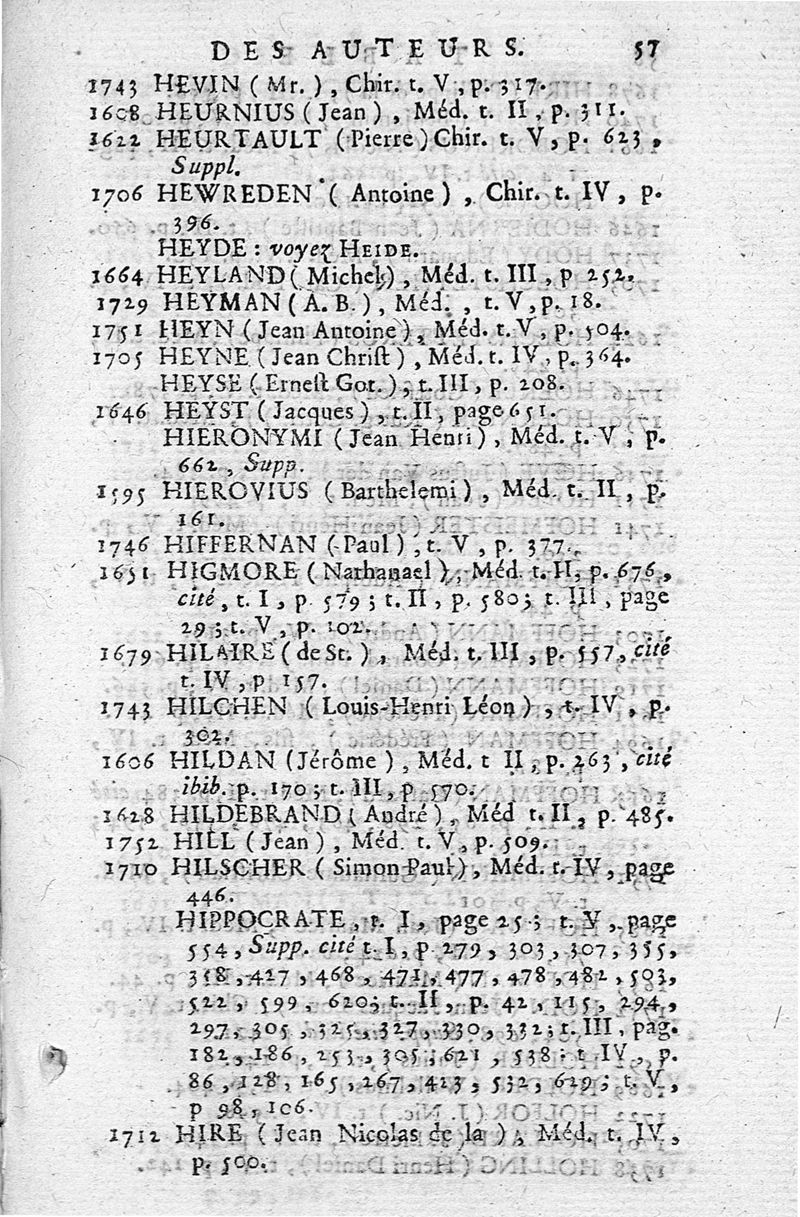 DES AUTEURS. 57
1743 HEVIN ( Mr. ), Chir. t. V, p. 317.
1608 HEURNIUS ( Jean ), Méd. t. II, p. 311.
1622 HEURTAULT ( Pierre ) Chir. t. V, p. 623,
Suppl.
1706 HEWREDEN ( Antoine ), Chir. t. IV, p.
396.
HEYDE : voyez HEIDE.
1664 HEYLAND ( Michel ), Méd. t. III, p 252.
1729 HEYMAN ( A. B. ), Méd., t. V, p. 18.
1751 HEYN ( Jean Antoine ), Méd. t. V, p. 504.
1705 HEYNE ( Jean Christ ), Méd. t. IV, p. 364.
HEYSE ( Ernest Got. ), t. III, p. 208.
1646 HEYST ( Jacques ), t. II, page 651.
HIERONYMI ( Jean Henri ), Méd. t. V, p.
662, Supp.
1595 HIEROVIUS ( Barthelemi ), Méd. t. II, p.
161.
1746 HIFFERNAN ( Paul ), t. V, p. 377.
1651 HIGMORE ( Nathanael ), Méd. t. II, p. 676,
cité, t. I, p 579 ; t. II, p. 580 ; t. III, page
29 ; t. V, p. 102.
1679 HILAIRE ( de St. ), Méd. t. III, p. 557, cité
t. IV, p 157.
1743 HILCHEN ( Louis-Henri Léon ), t. IV, p.
302.
1606 HILDAN (Jérôme ), Méd. t II, p. 263, cité
ibib. p. 170 ; t. III, p 570.
1628 HILDEBRAND ( André ), Méd t. II, p. 485.
1752 HILL ( Jean ), Méd. t. V, p. 509.
1710 HILSCHER ( Simon-Paul ), Méd. t. IV, page
446.
HIPPOCRATE, t. I, page 25 ; t. V, page
554, Supp. cité t. I, p 279, 303, 307, 355,
358, 427, 468, 471, 477, 478, 482, 503,
522, 599, 620 ; t. II, p. 42, 115, 294,
297, 305, 325, 327, 330, 332 ; t. III, pag.
182, 186, 253, 305 ; 621, 538 : t IV, p.
86, 128, 165, 267, 423, 532, 629 ; t. V,
p 98, 106.
1712 HIRE ( Jean Nicolas de la ), Méd. t. IV,
p. 500.